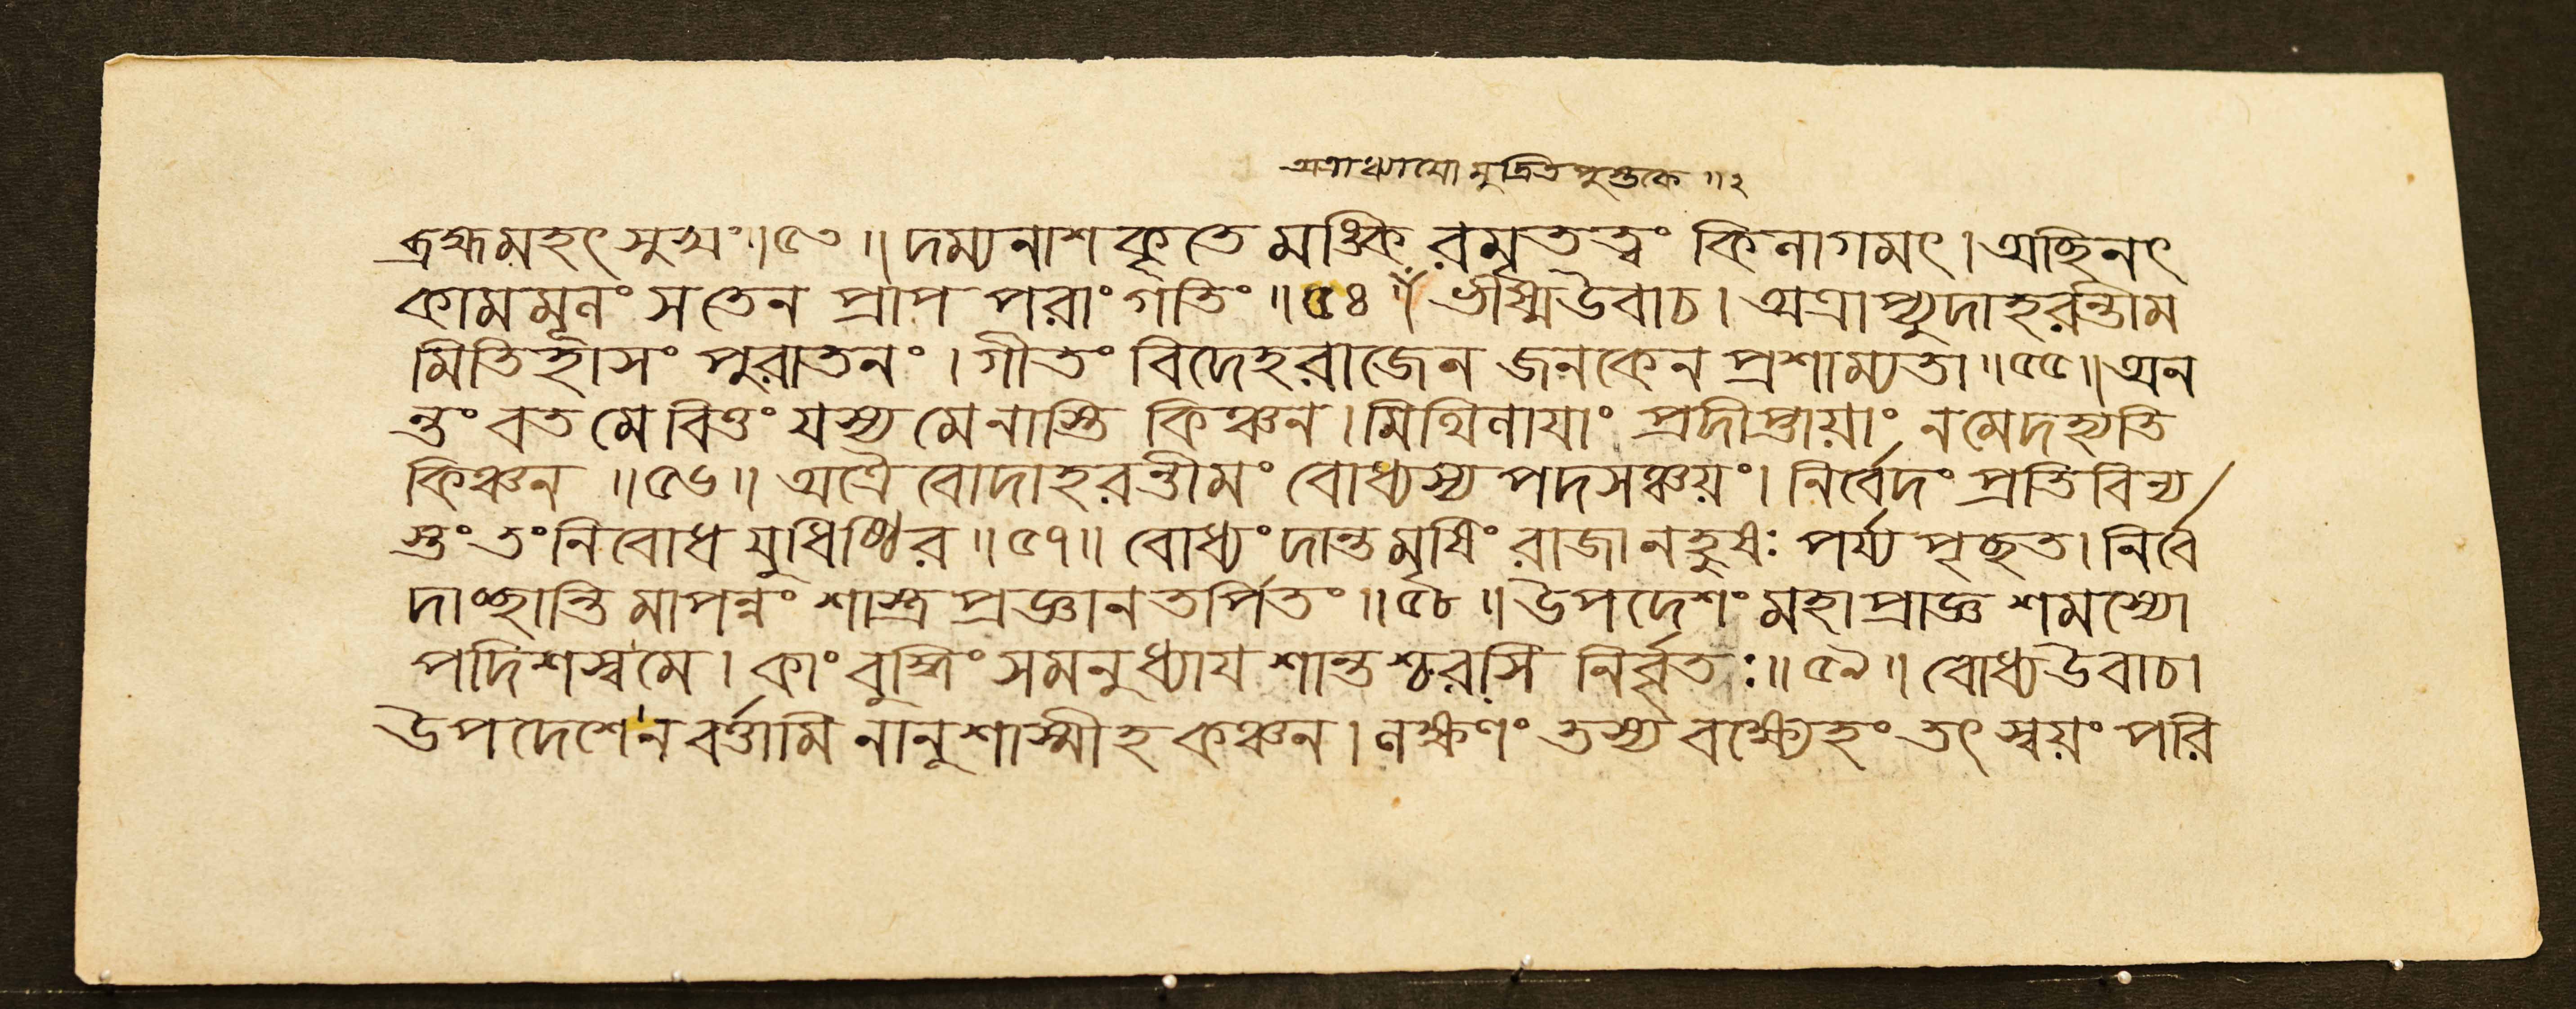 অত্রাধ্যায়ো মুদ্রিত পুস্তকে ॥২
ব্রহ্মমহৎ সুখং॥৫৩॥ দম্যনাশ কৃতে মঙ্কি রমৃতত্বং কিনাগমৎ। অছিনৎ
কামমূলং স তেন প্রাপ পরাং গতিং ॥৫৪॥ ভীষ্মউবাচ। অত্রাপ্যুদাহরন্তীম
মিতিহাসং পুরাতনং। গীতং বিদেহরাজেন জনকেন প্রশাম্যতা॥৫৫॥ অন
ন্তং বত মে বিত্তং যস্য মেনাস্তি কিঞ্চন। মিথিলাযাং প্রদীপ্তায়াং নমেদহ্যতি
কিঞ্চন ॥৫৬॥ অত্রৈ বোদাহরন্তীমং বোধ্যস্য পদসঞ্চয়ং। নির্বেদং প্রতি বিন্য
স্তং তং নিবোধ যুধিষ্ঠির ॥৫৭॥ বোধ্যং দান্তমৃষিং রাজা নহুষঃ পর্য্য পৃচ্ছত। নির্বে
দাচ্ছান্তি মাপন্নং শাস্ত্র প্রজ্ঞান তর্পিতং ॥৫৮॥ উপদেশং মহাপ্রাজ্ঞ শমস্যো
পদিশস্ব মে। কাং বুদ্ধিং সমনুধ্যায শান্তশ্চরসি নির্বৃতঃ॥৫৯॥ বোধ্যউবাচ।
উপদেশেন বর্ত্তামি নানুশাস্মীহ কঞ্চন। লক্ষণং তস্য বক্ষ্যেহং তৎ স্বয়ং পরি